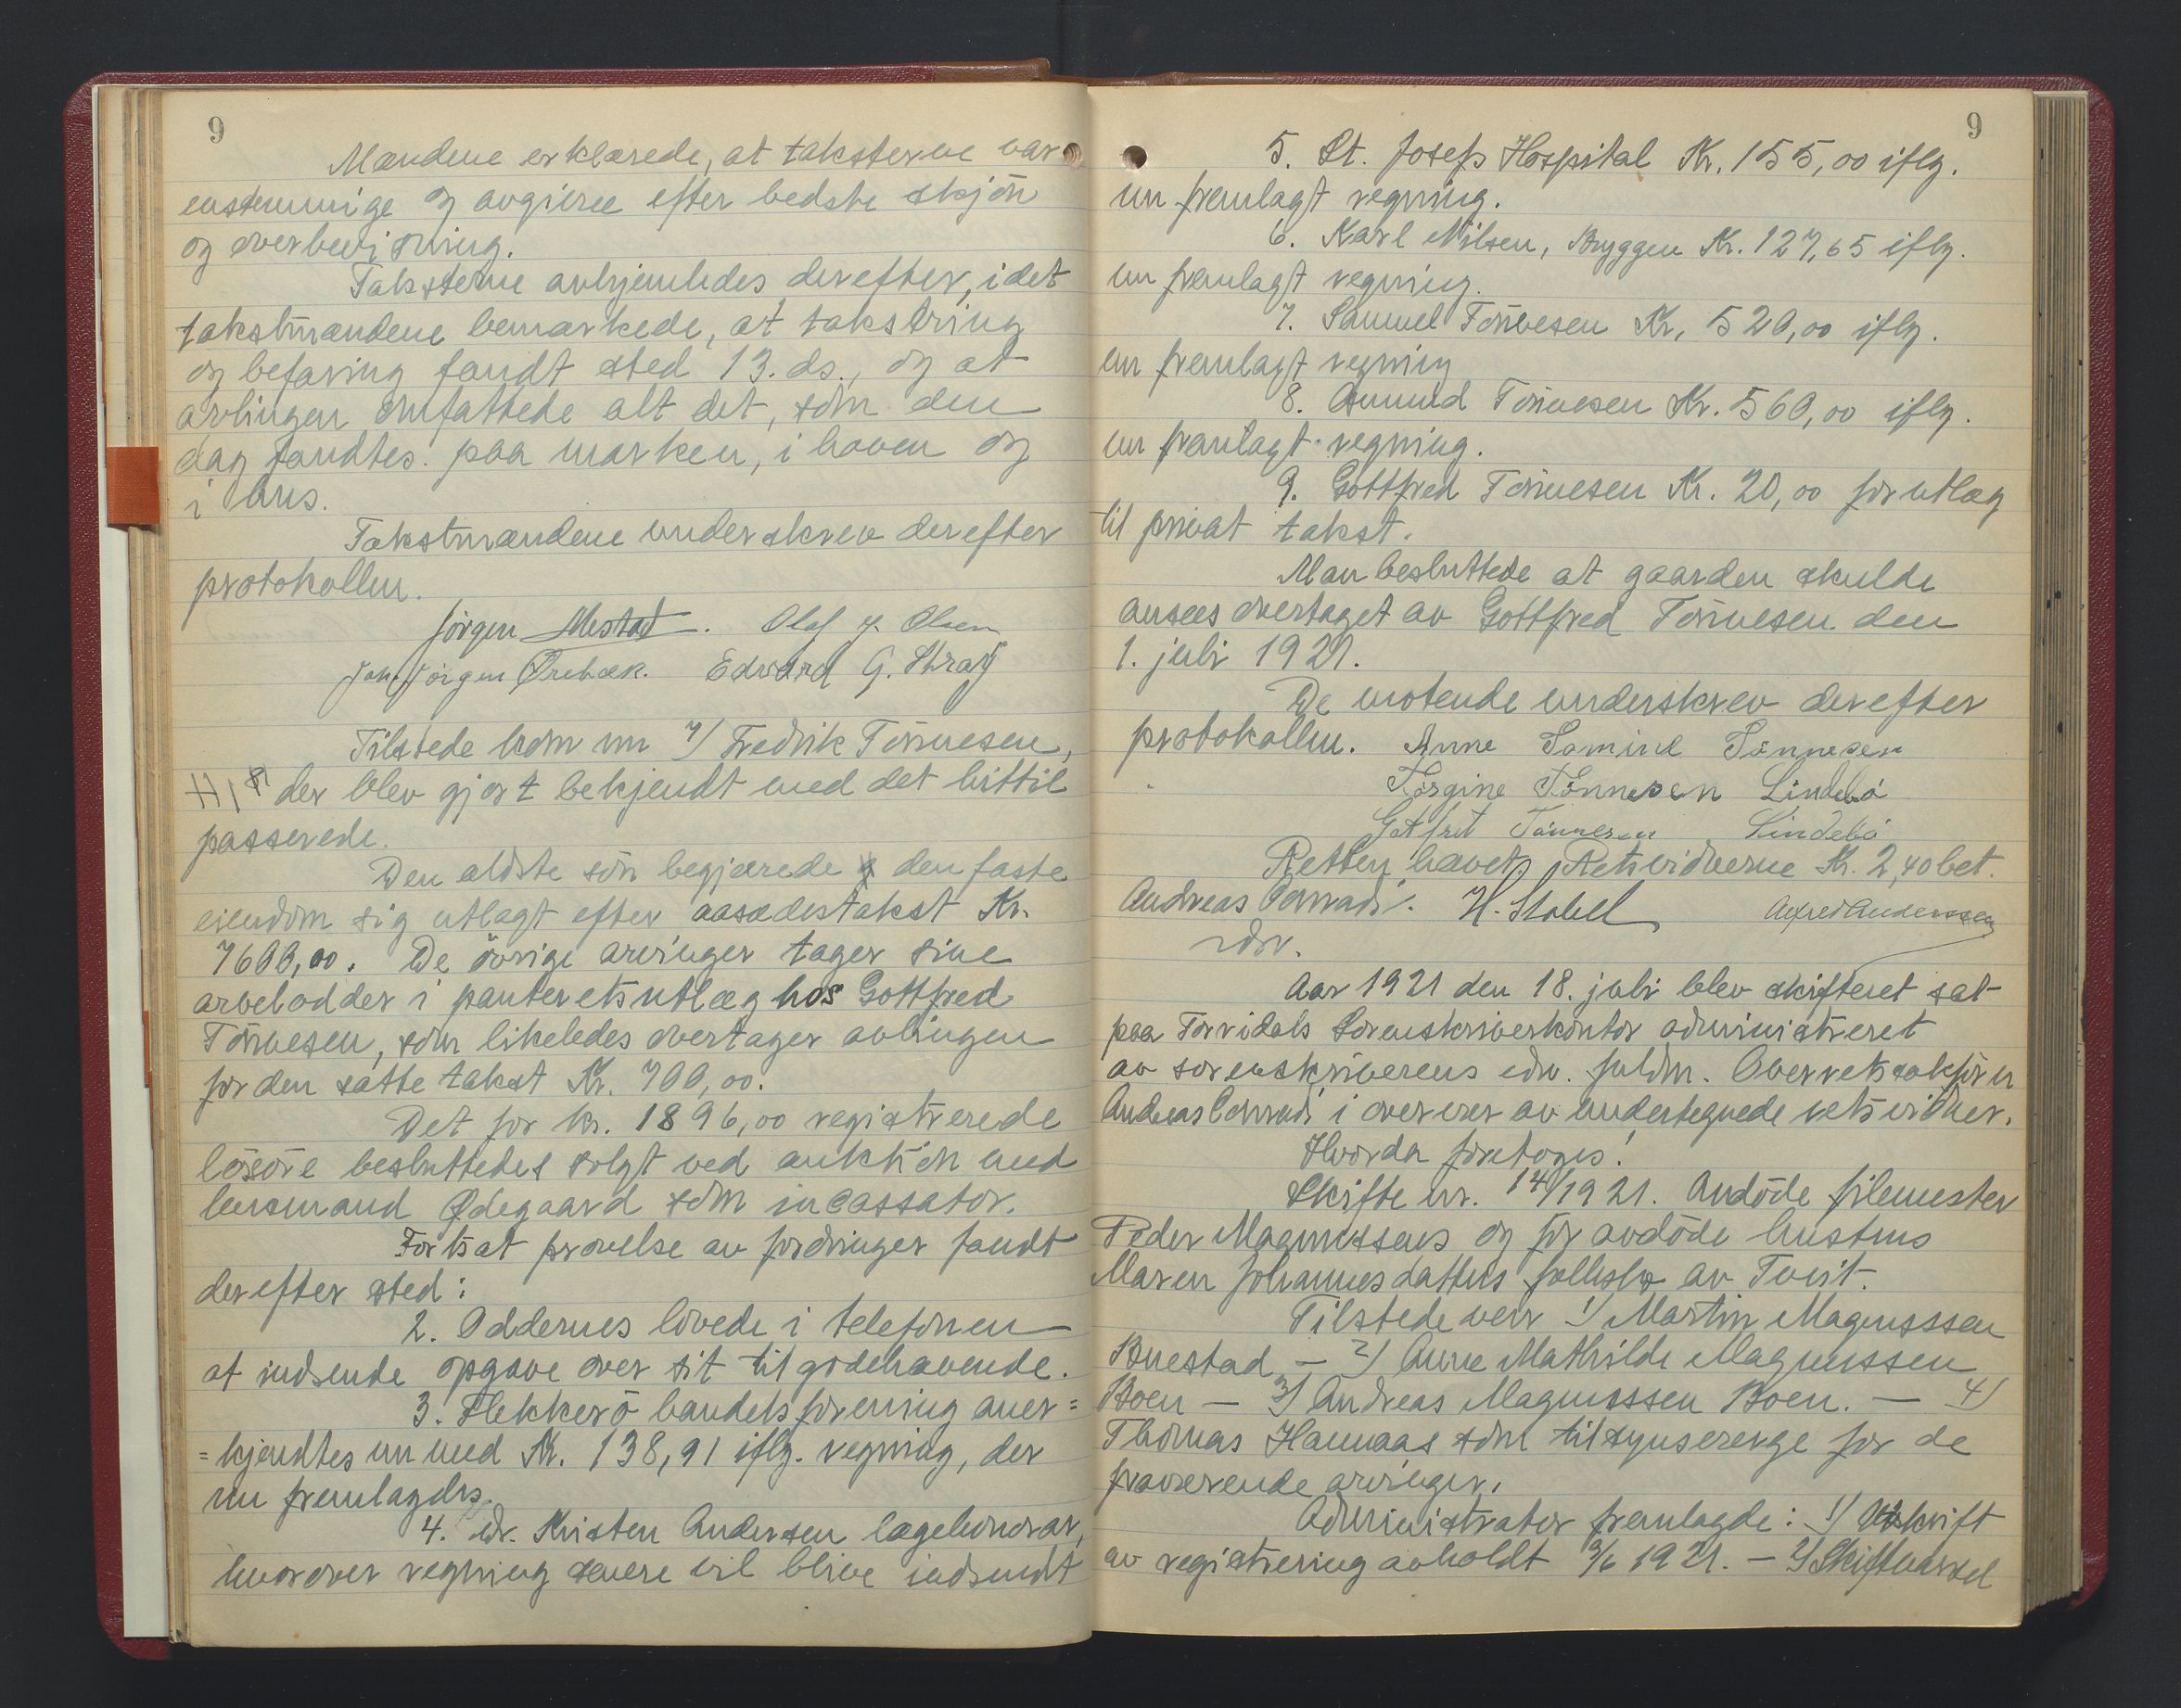 9
Mændene erklærede, at taksterne var
enstemmige og avgivne efter bedste skjön
og overbevisning.
Taksterne avhjemledes derefter, idet
takstmændene bemærkede, at takstring
og befaring fandt sted 13. ds., og at
avlingen omfattede alt det, som den
dag fandtes paa marken, i haven og
i hus.
Takstmændene underskrev derefter
protokollen.
Jörgen Mestad. Olaf J. Olsen
Joh. Jörgen Ørebæk. Edvard G. Stray
Tilstede kom nu 7/ Fredrik Tönnesen,
der blev gjort bekjendt med det hittil
passerede.
Den ældste sön begjærede den faste
eiendom sig utlagt efter aasædestakst Kr.
7600,00. De övrige arvinger tager sine
arvelodder i panteretsutlæg hos Gottfred
Tönnesen, som likeledes overtager avlingen
for den satte takst Kr. 700,00.
Det for kr. 1896,00 registrerede
lösöre besluttedes solgt ved auktion med
lensmand Ødegaard som incassator.
Fortsat prövelse av fordringer fandt
derefter sted:
2. Oddernes lovede i telefonen
at indsende opgave over sit tilgodehavende.
3. Flekkerö handelsforening aner=
=kjendtes nu med Kr. 138,91 iflg. regning, der
nu fremlagdes.
4. Dr. Kristen Andersen lægehonorar,
hvorover regning senere vil blive indsendt
9
5. St. Josefs Hospital Kr. 155,00 iflg.
nu fremlagt regning.
6. Karl Nilsen, Bryggen Kr. 127,65 iflg.
nu fremlagt regning.
7. Samuel Tönnesen Kr. 520,00 iflg.
nu fremlagt regning
8. Anund Tönnesen Kr. 560,00 iflg.
nu fremlagt regning.
9. Gottfred Tönnesen Kr. 20,00 for utlæg
til privat takst.
Man besluttede at gaarden skulde
ansees overtaget av Gottfred Tönnesen den
1. juli 1921.
De motende underskrev derefter
protokollen. Anne Tönnesen
Jörgine Tönnesen Lindebö
Gotfret Tönnesen Lindebö
Retten hævet. Retsvidnerne Kr. 2,40 bet.
Andreas Conradi. H. Stabell Alfred Anderssen
edsv.
Aar 1921 den 18. juli blev skifteret sat
paa Torridals Sorenskriverkontor administreret
av sorenskriverens edsv. fuldm. Overretssakförer
Andreas Conradi i overvær av undertegnede retsvidner.
Hvorda foretoges:
Skifte nr. 14/1921. Avdöde filemester
Peder Magnussens og för avdöde hustrus
Maren Johannesdatters fællesbo av Tveit.
Tilstede var 1/ Martin Magnussen
Buestad – 2/ Anne Mathilde Magnussen
Boen – 3/ Andreas Magnussen Boen. – 4/
Thomas Hamnaas som tilsynsverge for de
fraværende arvinger.
Administrator fremlagde: 1/ Utskrift
av registrering avholdt 3/6 1921. – 2/ Skiftvarsel